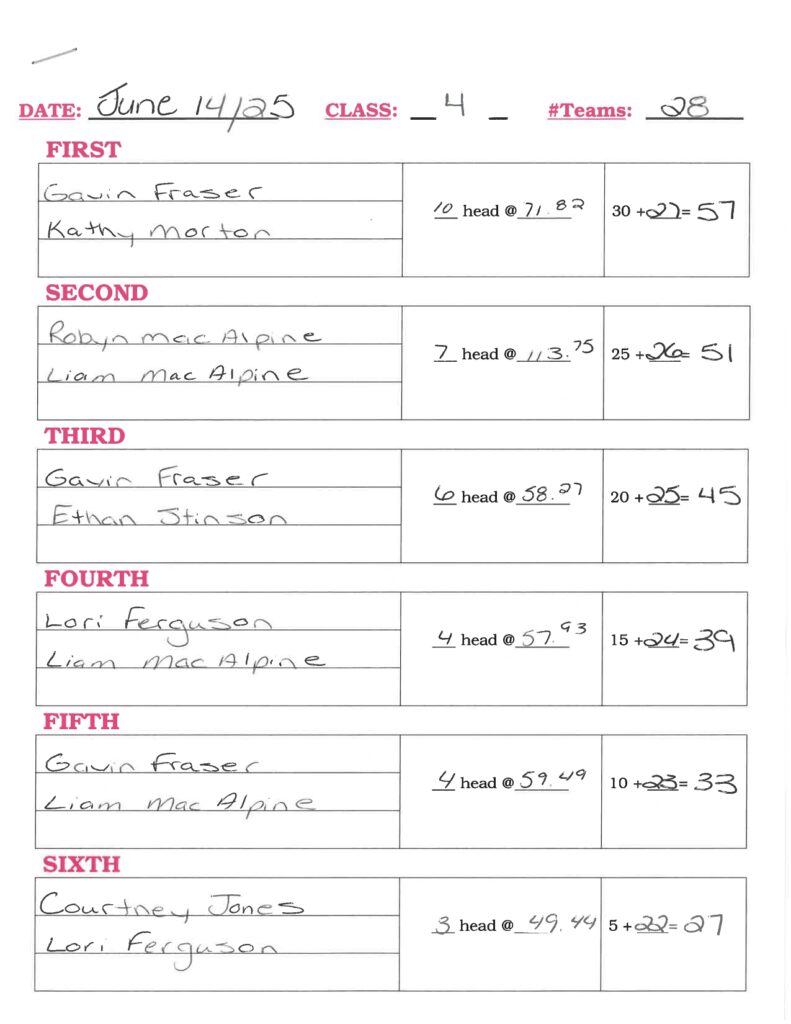 DATE: June 14/25 CLASS: 4 #Teams: 28
FIRST
Gavin Fraser
Kathy Morton
10 head @ 71.82 30 +27= 57
SECOND
Robyn Mac Alpine
Liam Mac Alpine
7 head @ 113.75 25 +26= 51
THIRD
Gavin Fraser
Ethan Stinson
6 head @ 58.27 20 +25= 45
FOURTH
Lori Ferguson
Liam Mac Alpine
4 head @ 57.93 15 +24= 39
FIFTH
Gavin Fraser
Liam Mac Alpine
4 head @ 59.49 10 +23= 33
SIXTH
Courtney Jones
Lori Ferguson
3 head @ 49.44 5 +22= 27